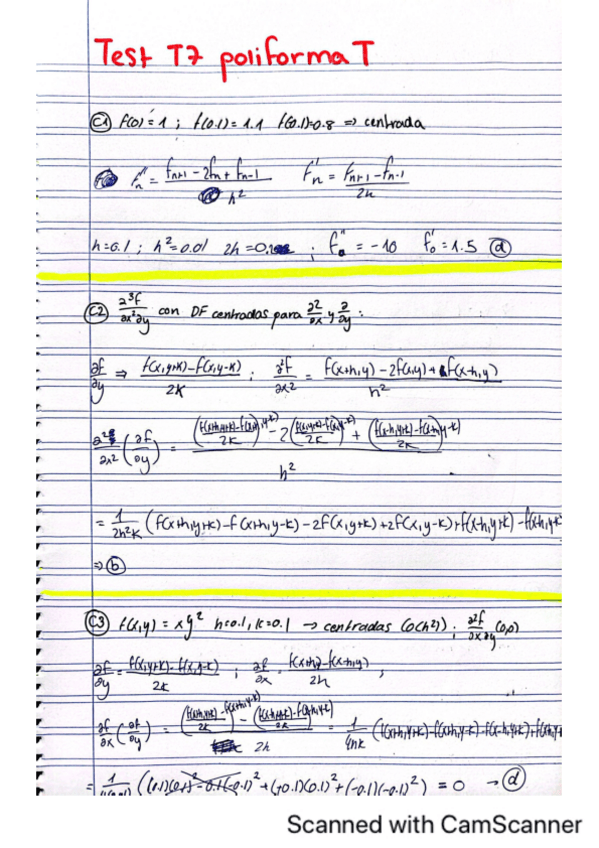 Test T7 poliformaT
C1 f(0)=1 ; f(0.1)=1.1 f(-0.1)=0.8 ⇒ centrada
f''n = (fn+1 - 2fn + fn-1)/h² f'n = (fn+1 - fn-1)/2h
h=0.1 ; h²=0.01 2h=0.2 ; f''0 = -10 f'0 = 1.5 (a)
C2 ∂³f/∂x²∂y con DF centradas para ∂²/∂x y ∂/∂y :
∂f/∂y ⇒ (f(x,y+k)-f(x,y-k))/2k ; ∂²f/∂x² = (f(x+h,y) - 2f(x,y) + f(x-h,y))/h²
∂²/∂x² (∂f/∂y) =
h²
= 1/2h²k (f(x+h,y+k)-f(x+h,y-k)-2f(x,y+k)+2f(x,y-k)+f(x-h,y+k)-f(x-h,y-k
⇒ (b)
C3 f(x,y) = xy² h=0.1, k=0.1 → centradas (O(h²)) ; ∂²f/∂x∂y (0,0)
∂f/∂y = (f(x,y+k)-f(x,y-k))/2k ; ∂f/∂x = /2h ,
∂f/∂x (∂f/∂y) = /2h = 1/4hk (f(x+h,y+k)-f(x+h,y-k)-f(x-h,y+k)+f(x-h,y
= (0.1)(0.1)² - 0.1(-0.1)² + (-0.1)(0.1)² + (-0.1)(-0.1)²) = 0 → (d)
Scanned with CamScanner